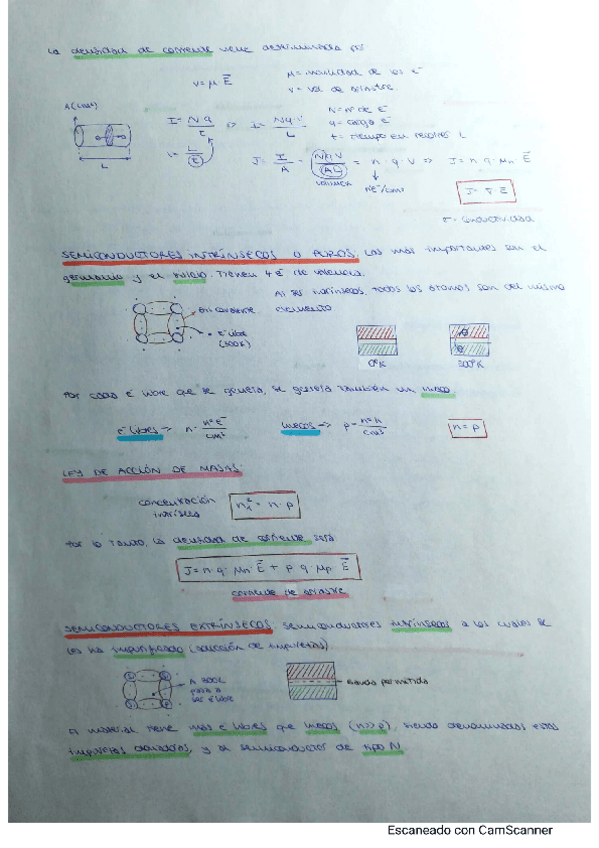 La densidad de corriente viene determinada por
v = μ E⃗
μ = movilidad de los e⁻
v = vel de arrastre
A (cm²)
L
I = N q / t ⇒ i = N q v / L
v = L / t
N = nº de e⁻
q = carga e⁻
t = tiempo en recorrer L
J = I / A = N q v / (A L) = n · q · v ⇒ J = n q · μn E⃗
volumen
nº e⁻/cm³
J = σ · E⃗
σ = conductividad
SEMICONDUCTORES INTRÍNSECOS O PUROS. Los más importantes son el
germanio y el silicio. Tienen 4 e⁻ de valencia.
Al ser intrínsecos, todos los átomos son del mismo
elemento
e⁻ libre
(300K)
0ºK
300ºK
Por cada e⁻ libre que se genera, se genera también un hueco.
e⁻ libres → n = nº e⁻ / cm³
huecos → p = nº h / cm³
n = p
LEY DE ACCIÓN DE MASAS:
concentración
intrínseca
nᵢ² = n · p
Por lo tanto, la densidad de corriente será
J = n · q · μn · E⃗ + p q μp E⃗
corriente de arrastre
SEMICONDUCTORES EXTRÍNSECOS. Semiconductores intrínsecos a los cuales se
les ha impurificado (adición de impurezas)
A 300K
pasa a
ser e⁻ libre
Banda permitida
El material tiene más e⁻ libres que huecos (n>>p), siendo denominadas estas
impurezas donadoras, y el semiconductor de tipo N.
Escaneado con CamScanner